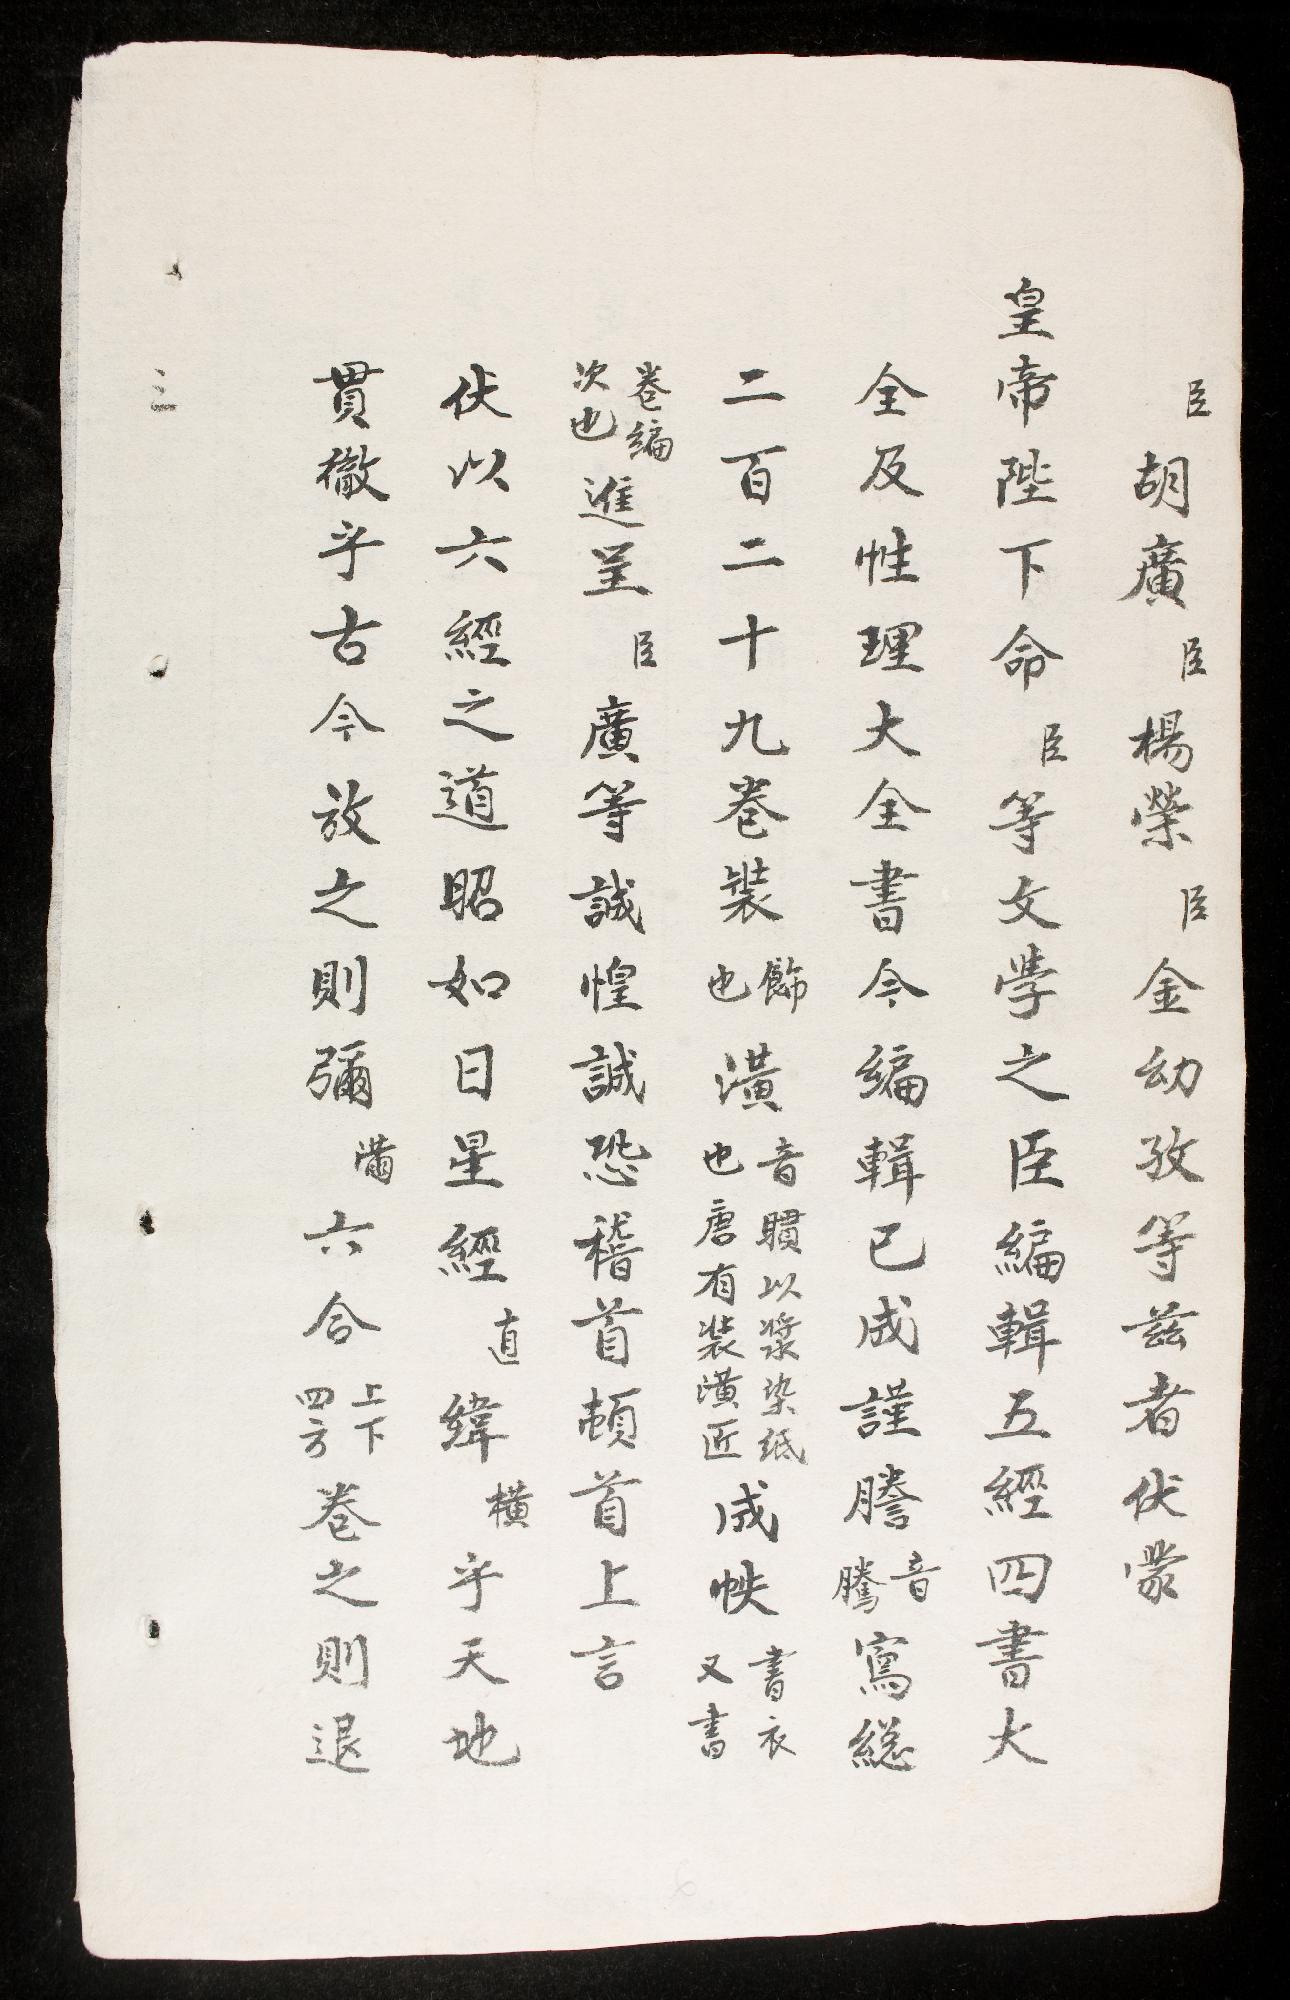 臣胡廣臣楊榮臣金幼孜等茲者伏蒙
皇帝陛下命臣等文學之臣編輯五經四書大
全及性理大全書今編輯已成謹謄音騰寫総
二百二十九卷裝飾也潢音䁻以漿染紙也唐有裝潢匠成帙書衣又書
卷編次也進呈臣廣等誠惶誠恐稽首頓首上言
伏以六經之道昭如日星經直緯橫乎天地
貫徹乎古今放之則彌滿六合上下四方卷之則退
三